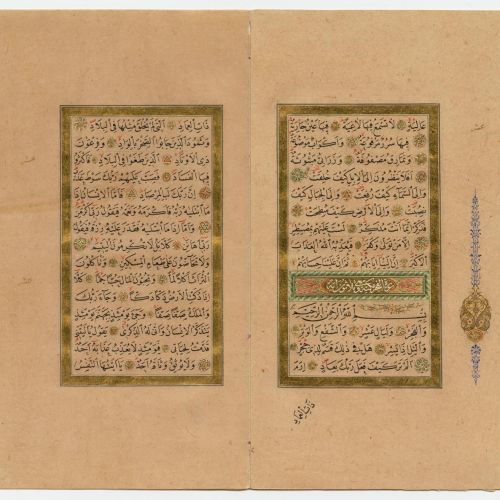 عَالِيَةٍ لَا تَسْمَعُ فِيهَا لَاغِيَةً فِيهَا عَيْنٌ جَارِيَةٌ
فِيهَا سُرُرٌ مَرْفُوعَةٌ وَأَكْوَابٌ مَوْضُوعَةٌ
وَنَمَارِقُ مَصْفُوفَةٌ وَزَرَابِيُّ مَبْثُوثَةٌ
أَفَلَا يَنْظُرُونَ إِلَى الْإِبِلِ كَيْفَ خُلِقَتْ
وَإِلَى السَّمَاءِ كَيْفَ رُفِعَتْ وَإِلَى الْجِبَالِ كَيْفَ
نُصِبَتْ وَإِلَى الْأَرْضِ كَيْفَ سُطِحَتْ
فَذَكِّرْ إِنَّمَا أَنْتَ مُذَكِّرٌ لَسْتَ عَلَيْهِمْ بِمُصَيْطِرٍ
إِلَّا مَنْ تَوَلَّى وَكَفَرَ فَيُعَذِّبُهُ اللَّهُ الْعَذَابَ
الْأَكْبَرَ إِنَّ إِلَيْنَا إِيَابَهُمْ ثُمَّ إِنَّ عَلَيْنَا حِسَابَهُمْ
سورة الفجر
بِسْمِ اللَّهِ الرَّحْمَنِ الرَّحِيمِ
وَالْفَجْرِ وَلَيَالٍ عَشْرٍ وَالشَّفْعِ وَالْوَتْرِ
وَاللَّيْلِ إِذَا يَسْرِ هَلْ فِي ذَلِكَ قَسَمٌ لِذِي حِجْرٍ
أَلَمْ تَرَ كَيْفَ فَعَلَ رَبُّكَ بِعَادٍ إِرَمَ
ذات العماد
ذَاتِ الْعِمَادِ الَّتِي لَمْ يُخْلَقْ مِثْلُهَا فِي الْبِلَادِ
وَثَمُودَ الَّذِينَ جَابُوا الصَّخْرَ بِالْوَادِ وَفِرْعَوْنَ
ذِي الْأَوْتَادِ الَّذِينَ طَغَوْا فِي الْبِلَادِ فَأَكْثَرُوا
فِيهَا الْفَسَادَ فَصَبَّ عَلَيْهِمْ رَبُّكَ سَوْطَ عَذَابٍ
إِنَّ رَبَّكَ لَبِالْمِرْصَادِ فَأَمَّا الْإِنْسَانُ إِذَا
مَا ابْتَلَيهُ رَبُّهُ فَأَكْرَمَهُ وَنَعَّمَهُ فَيَقُولُ رَبِّي أَكْرَمَنِ
وَأَمَّا إِذَا مَا ابْتَلَيهُ فَقَدَرَ عَلَيْهِ رِزْقَهُ فَيَقُولُ
رَبِّي أَهَانَنِ كَلَّا بَلْ لَا تُكْرِمُونَ الْيَتِيمَ
وَلَا تَحَاضُّونَ عَلَى طَعَامِ الْمِسْكِينِ وَتَأْكُلُونَ
التُّرَاثَ أَكْلًا لَمًّا وَتُحِبُّونَ الْمَالَ حُبًّا جَمًّا كَلَّا
إِذَا دُكَّتِ الْأَرْضُ دَكًّا دَكًّا وَجَاءَ رَبُّكَ
وَالْمَلَكُ صَفًّا صَفًّا وَجِيءَ يَوْمَئِذٍ بِجَهَنَّمَ يَوْمَئِذٍ
يَتَذَكَّرُ الْإِنْسَانُ وَأَنَّى لَهُ الذِّكْرَى يَقُولُ يَا لَيْتَنِي
قَدَّمْتُ لِحَيَاتِي فَيَوْمَئِذٍ لَا يُعَذِّبُ عَذَابَهُ أَحَدٌ
وَلَا يُوثِقُ وَثَاقَهُ أَحَدٌ يَا أَيَّتُهَا النَّفْسُ